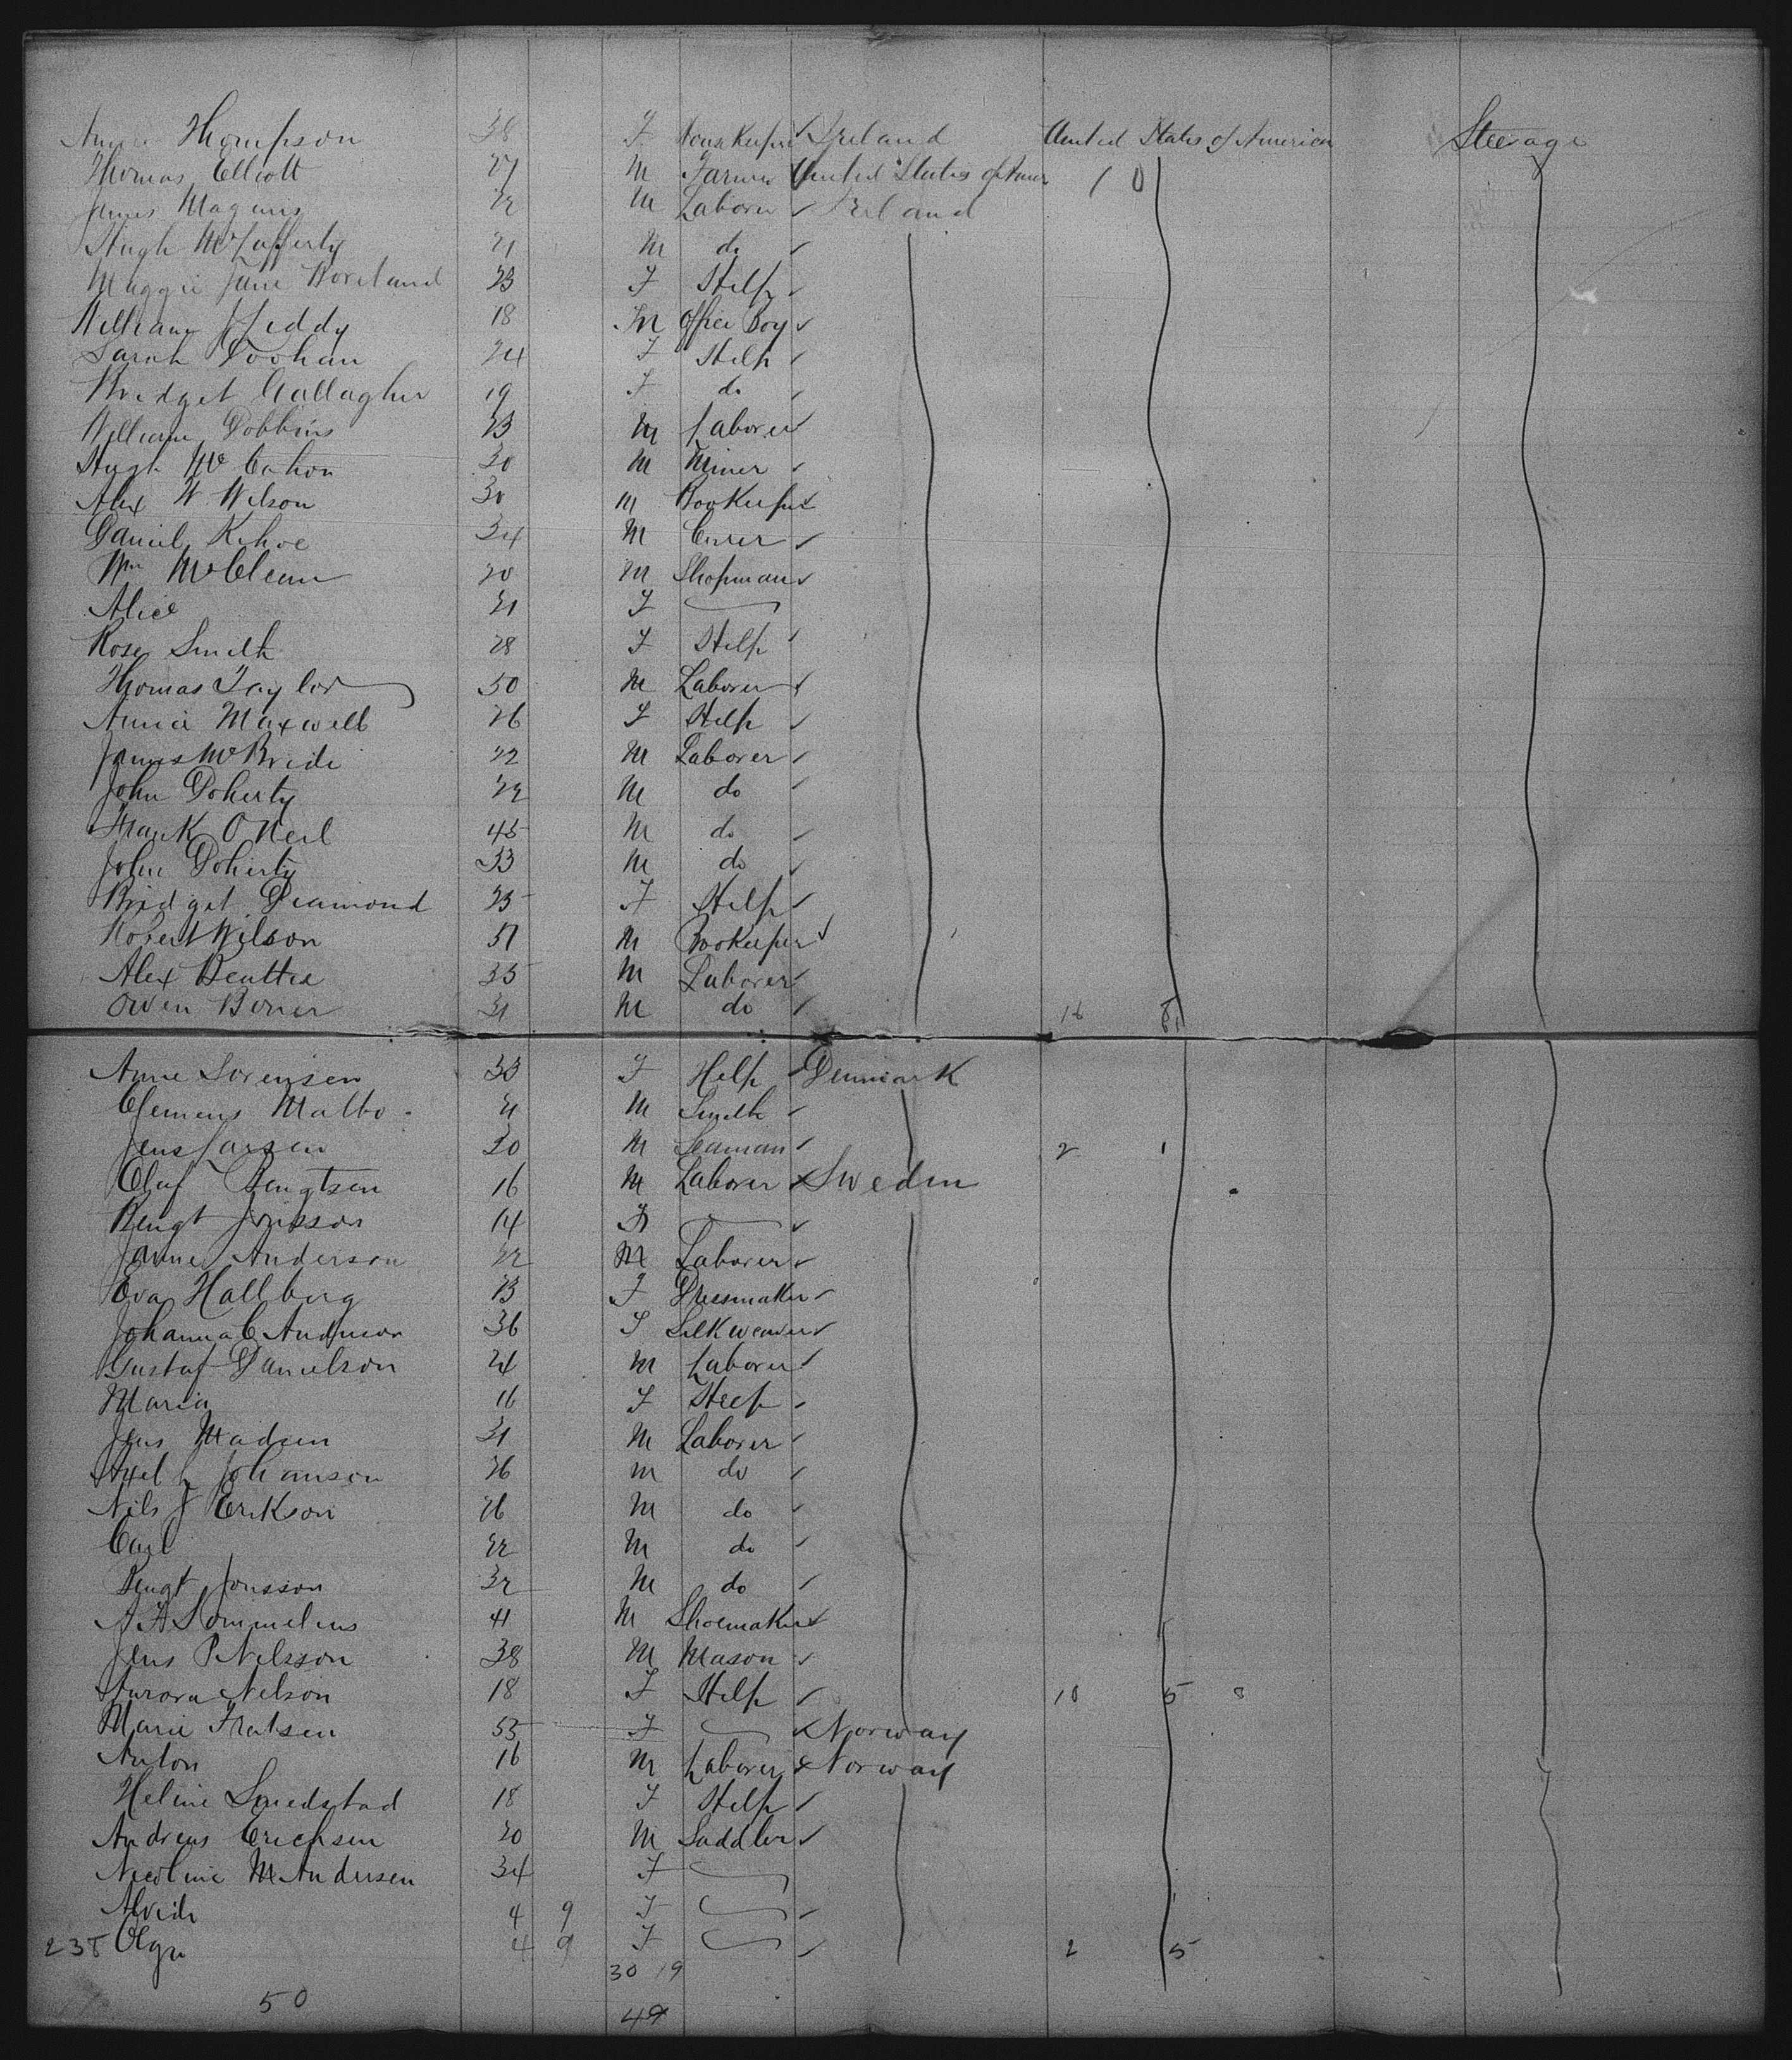 Annie Thompson 38 F Housekeeper ✓ Ireland United States of America Steerage
Thomas Elliott 27 M Farmer United States of Amer 1 0
James Maginis 22 M Laborer ✓ Ireland
Hugh McCafferty 21 M do ✓
Maggie Jane Boreland 23 F Help ✓
William J Leddy 18 M Office Boy ✓
Sarah Doohan 24 F Help ✓
Bridget Gallagher 19 F do ✓
William Dobbins 23 M Laborer ✓
Hugh McCahon 30 M Miner ✓
Alex W Wilson 30 M Bookeeper ✓
Daniel Kehoe 34 M ✓
Wm McClean 30 M Shopman ✓
Alice 31 F
Rose Smith 28 F Help ✓
Thomas Taylor 50 M Laborer ✓
Annie Maxwell 26 F Help ✓
James McBride 22 M Laborer ✓
John Doherty 22 M do ✓
Frank O Neil 45 M do ✓
John Doherty 33 M do ✓
Bridget Diamond 25 F Help ✓
Robert Wilson 51 M Bookeeper ✓
Alex Beattie 35 M Laborer ✓
Owen Boner 31 M do ✓ 16 8
Anne Sorensen 33 F Help ✓ Denmark
Clemens Maltbo 21 M Smith ✓
Jens Larsen 30 M Seaman ✓ 2 1
Oluf Bengtsen 16 M Laborer ✓ Sweden
Bengt Jonsson 14 ✓
Janne Anderson 22 M Laborer ✓
Eva Hallberg 23 F Dressmaker ✓
Johanna C Anderson 36 F Silkweaver ✓
Gustaf Danielson 24 M Laborer ✓
Maria 16 F Help ✓
Jens Madsen 31 M Laborer ✓
Axel L Johanson 26 M do ✓
Nils J Erikson 26 M do ✓
Carl 22 M do ✓
Bengt Jonsson 32 M do ✓
A A Sommelius 41 M Shoemaker ✓
Jens P Nilsson 38 M Mason ✓
Aurora Nelson 18 F Help ✓ 10 5
Marie 55 F ✓ Norway
Anton 16 M Laborer ✓ Norway
Heline Smedstad 18 F Help ✓
Andreas Erichsen 20 M Saddler ✓
Nicoline M Andersen 34 F
Alvide 4 9 F ✓
238 Olga 4 9 F ✓ 2 5
30 19
50
49